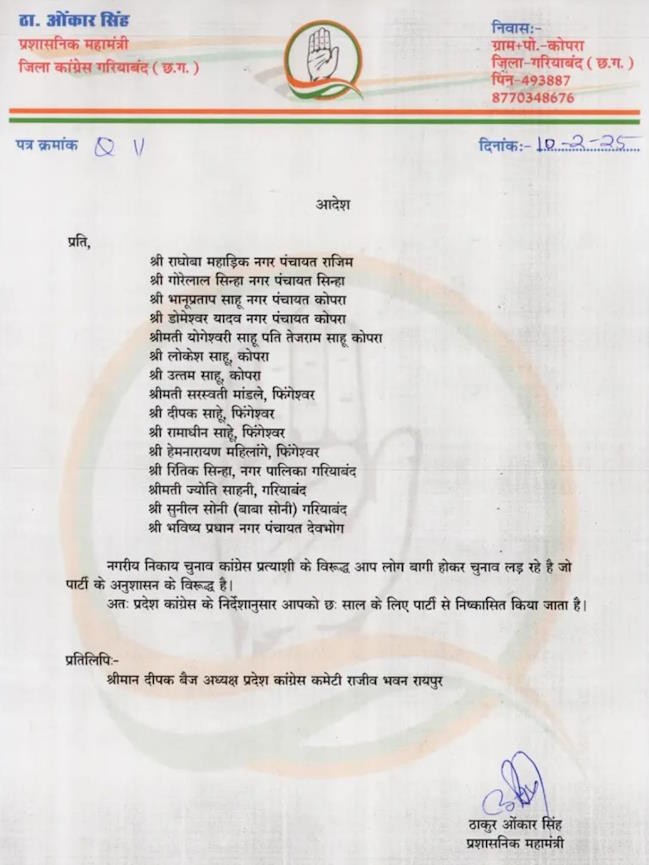 ठा. ओंकार सिंह
प्रशासनिक महामंत्री
जिला कांग्रेस गरियाबंद ( छ.ग. )
निवास:-
ग्राम+पो.-कोपरा
जिला-गरियाबंद ( छ.ग. )
पिन-493887
8770348676
पत्र क्रमांक
दिनांक:- 10-2-25
आदेश
प्रति,
श्री राघोबा महाड़िक नगर पंचायत राजिम
श्री गोरेलाल सिन्हा नगर पंचायत सिन्हा
श्री भानूप्रताप साहू नगर पंचायत कोपरा
श्री डोमेश्वर यादव नगर पंचायत कोपरा
श्रीमती योगेश्वरी साहू पति तेजराम साहू कोपरा
श्री लोकेश साहू, कोपरा
श्री उत्तम साहू, कोपरा
श्रीमती सरस्वती मांडले, फिंगेश्वर
श्री दीपक साहे, फिंगेश्वर
श्री रामाधीन साहे, फिंगेश्वर
श्री हेमनारायण महिलांगे, फिंगेश्वर
श्री रितिक सिन्हा, नगर पालिका गरियाबंद
श्रीमती ज्योति साहनी, गरियाबंद
श्री सुनील सोनी (बाबा सोनी) गरियाबंद
श्री भविष्य प्रधान नगर पंचायत देवभोग
नगरीय निकाय चुनाव कांग्रेस प्रत्याशी के विरूद्ध आप लोग बागी होकर चुनाव लड़ रहे है जो
पार्टी के अनुशासन के विरूद्ध है।
अतः प्रदेश कांग्रेस के निर्देशानुसार आपको छः साल के लिए पार्टी से निष्कासित किया जाता है।
प्रतिलिपि:-
श्रीमान दीपक बैज अध्यक्ष प्रदेश कांग्रेस कमेटी राजीव भवन रायपुर
ठाकुर ओंकार सिंह
प्रशासनिक महामंत्री